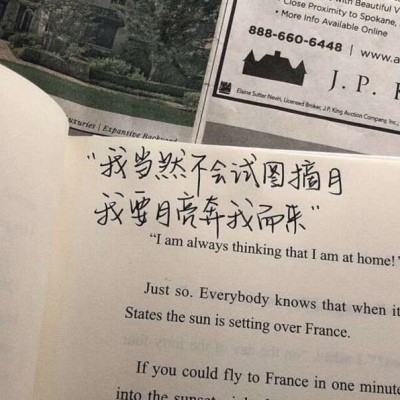 Beautiful V
• Close Proximity to Spokane,
• More Info Available Online
888-660-6448 | www.a
J. P. K
Elaine Sutter Nevin, Licensed Broker, J.P. King Auction Company, Inc.,
uxuries | Expansive Backyard
“我当然不会试图摘月
我要月亮奔我而来”
“I am always thinking that I am at home!”
Just so. Everybody knows that when it
States the sun is setting over France.
If you could fly to France in one minute
into the sunset, right